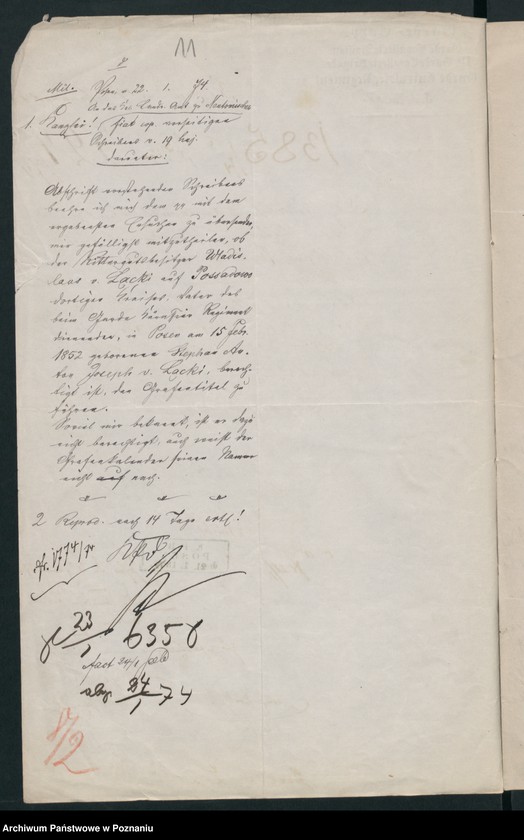 11
Mil. Posen d. 22. 1. 74.
An das Kön. Landr. Amt zu
1. Kanzlei! fiat cop. vorseitigen
Schreibens v. 19 huj.
darunter:
Abschrift vorstehenden Schreibens
beehre ich mich dem pp mit dem
ergebensten Ersuchen zu übersenden,
mir gefälligst mitzutheilen, ob
der Rittergutsbesitzer Wladis-
laus v. Łącki auf Possadowo
dortigen Kreises, Vater des
beim Garde Kürassier Regiment
dienenden, in Posen am 15 Febr.
1852 geborenen Stephan An-
ton Joseph v. Łącki, berech-
tigt ist, den Grafentitel zu
führen.
Soviel mir bekannt, ist er dazu
nicht berechtigt, auch weist der
Grafenkalender seinen Namen
nicht auf nach.
2 Reprod. nach 14 Tage
1774/74
23/1 6358
fact 24/1
abg 24/1 74
8/2
Archiwum Państwowe w Poznaniu